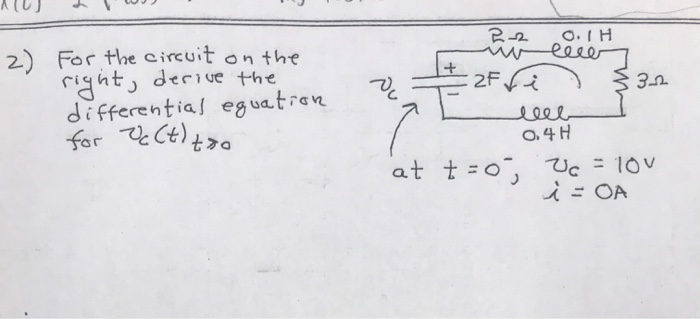 2) For the circuit on the
right, derive the
differential equation
for vc(t) t>0
2Ω 0.1H
+
vc 2F i 3Ω
-
0.4H
at t=0⁻, vc = 10V
i = 0A